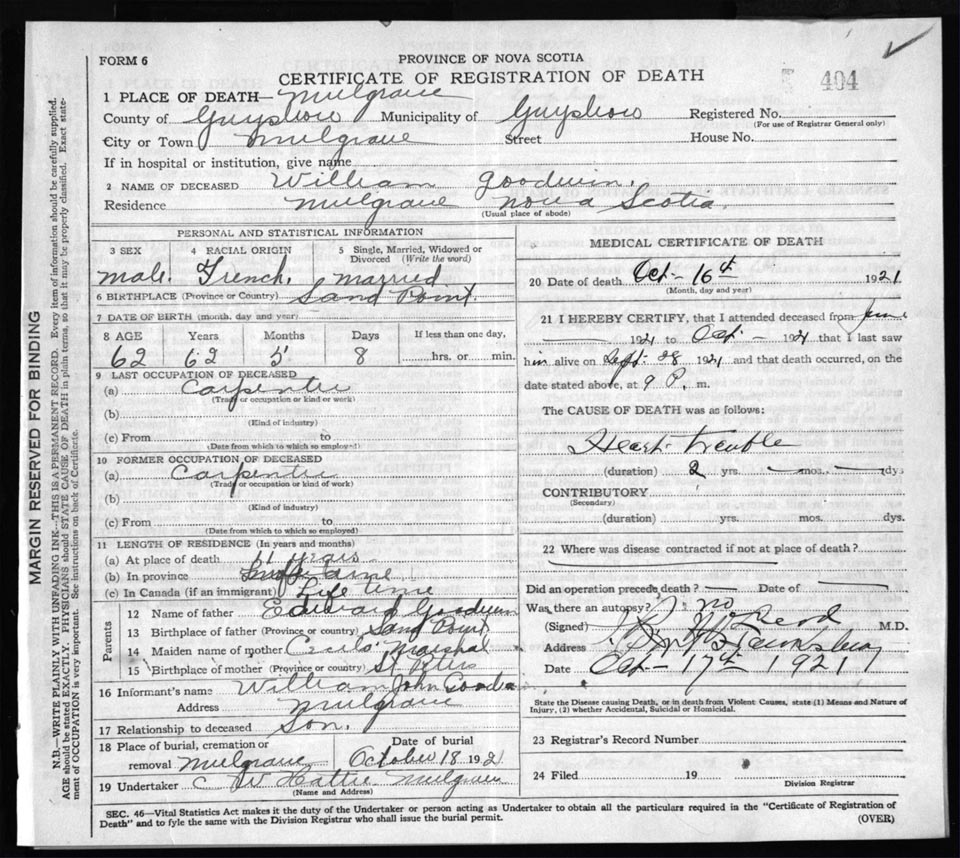 FORM 6
PROVINCE OF NOVA SCOTIA
CERTIFICATE OF REGISTRATION OF DEATH
404
1 PLACE OF DEATH— Mulgrave
County of Guysboro Municipality of Guysboro Registered No.
(For use of Registrar General only)
City or Town Mulgrave Street House No.
If in hospital or institution, give name
2 NAME OF DECEASED William Goodwin.
Residence Mulgrave Nova Scotia.
(Usual place of abode)
PERSONAL AND STATISTICAL INFORMATION
3 SEX 4 RACIAL ORIGIN 5 Single, Married, Widowed or Divorced (Write the word)
male. French. married.
6 BIRTHPLACE (Province or Country) Sand Point.
7 DATE OF BIRTH (month, day and year)
8 AGE Years Months Days If less than one day,
62 62 5 8 hrs. or min.
9 LAST OCCUPATION OF DECEASED
(a) Carpenter
(Trade or occupation or kind or work)
(b)
(Kind of industry)
(c) From to
(Date from which to which so employed)
10 FORMER OCCUPATION OF DECEASED
(a) Carpenter
(Trade or occupation or kind of work)
(b)
(Kind of industry)
(c) From to
(Date from which to which so employed)
11 LENGTH OF RESIDENCE (In years and months)
(a) At place of death years
(b) In province
(c) In Canada (if an immigrant) Life time
Parents
12 Name of father Edward Goodwin
13 Birthplace of father (Province or country) Sand Point
14 Maiden name of mother Marshal
15 Birthplace of mother (Province or country) St Peters
16 Informant's name William John Goodwin
Address Mulgrave
17 Relationship to deceased Son.
18 Place of burial, cremation or removal Mulgrave Date of burial October 18 1921
19 Undertaker C W Hattie Mulgrave
(Name and Address)
MEDICAL CERTIFICATE OF DEATH
20 Date of death Oct- 16th 1921
(Month, day and year)
21 I HEREBY CERTIFY, that I attended deceased from June
1921 to Oct- 1921 that I last saw
him alive on Sept. 28 1921 and that death occurred, on the
date stated above, at 9 P. m.
The CAUSE OF DEATH was as follows:
Heart- trouble
(duration) 2 yrs. — mos. — dys
CONTRIBUTORY
(Secondary)
(duration) yrs. mos. dys.
22 Where was disease contracted if not at place of death?
Did an operation precede death? — Date of —
Was there an autopsy? no
(Signed) M.D.
Address
Date Oct- 17th 1921
State the Disease causing Death, or in death from Violent Causes, state (1) Means and Nature of
Injury, (2) whether Accidental, Suicidal or Homicidal.
23 Registrar's Record Number
24 Filed 19
Division Registrar
SEC. 46—Vital Statistics Act makes it the duty of the Undertaker or person acting as Undertaker to obtain all the particulars required in the "Certificate of Registration of
Death" and to fyle the same with the Division Registrar who shall issue the burial permit.
(OVER)
MARGIN RESERVED FOR BINDING
N.B.—WRITE PLAINLY WITH UNFADING INK—THIS IS A PERMANENT RECORD. Every item of information should be carefully supplied.
AGE should be stated EXACTLY. PHYSICIANS should STATE CAUSE OF DEATH in plain terms, so that it may be properly classified. Exact state-
ment of OCCUPATION is very important. See instructions on back of Certificate.